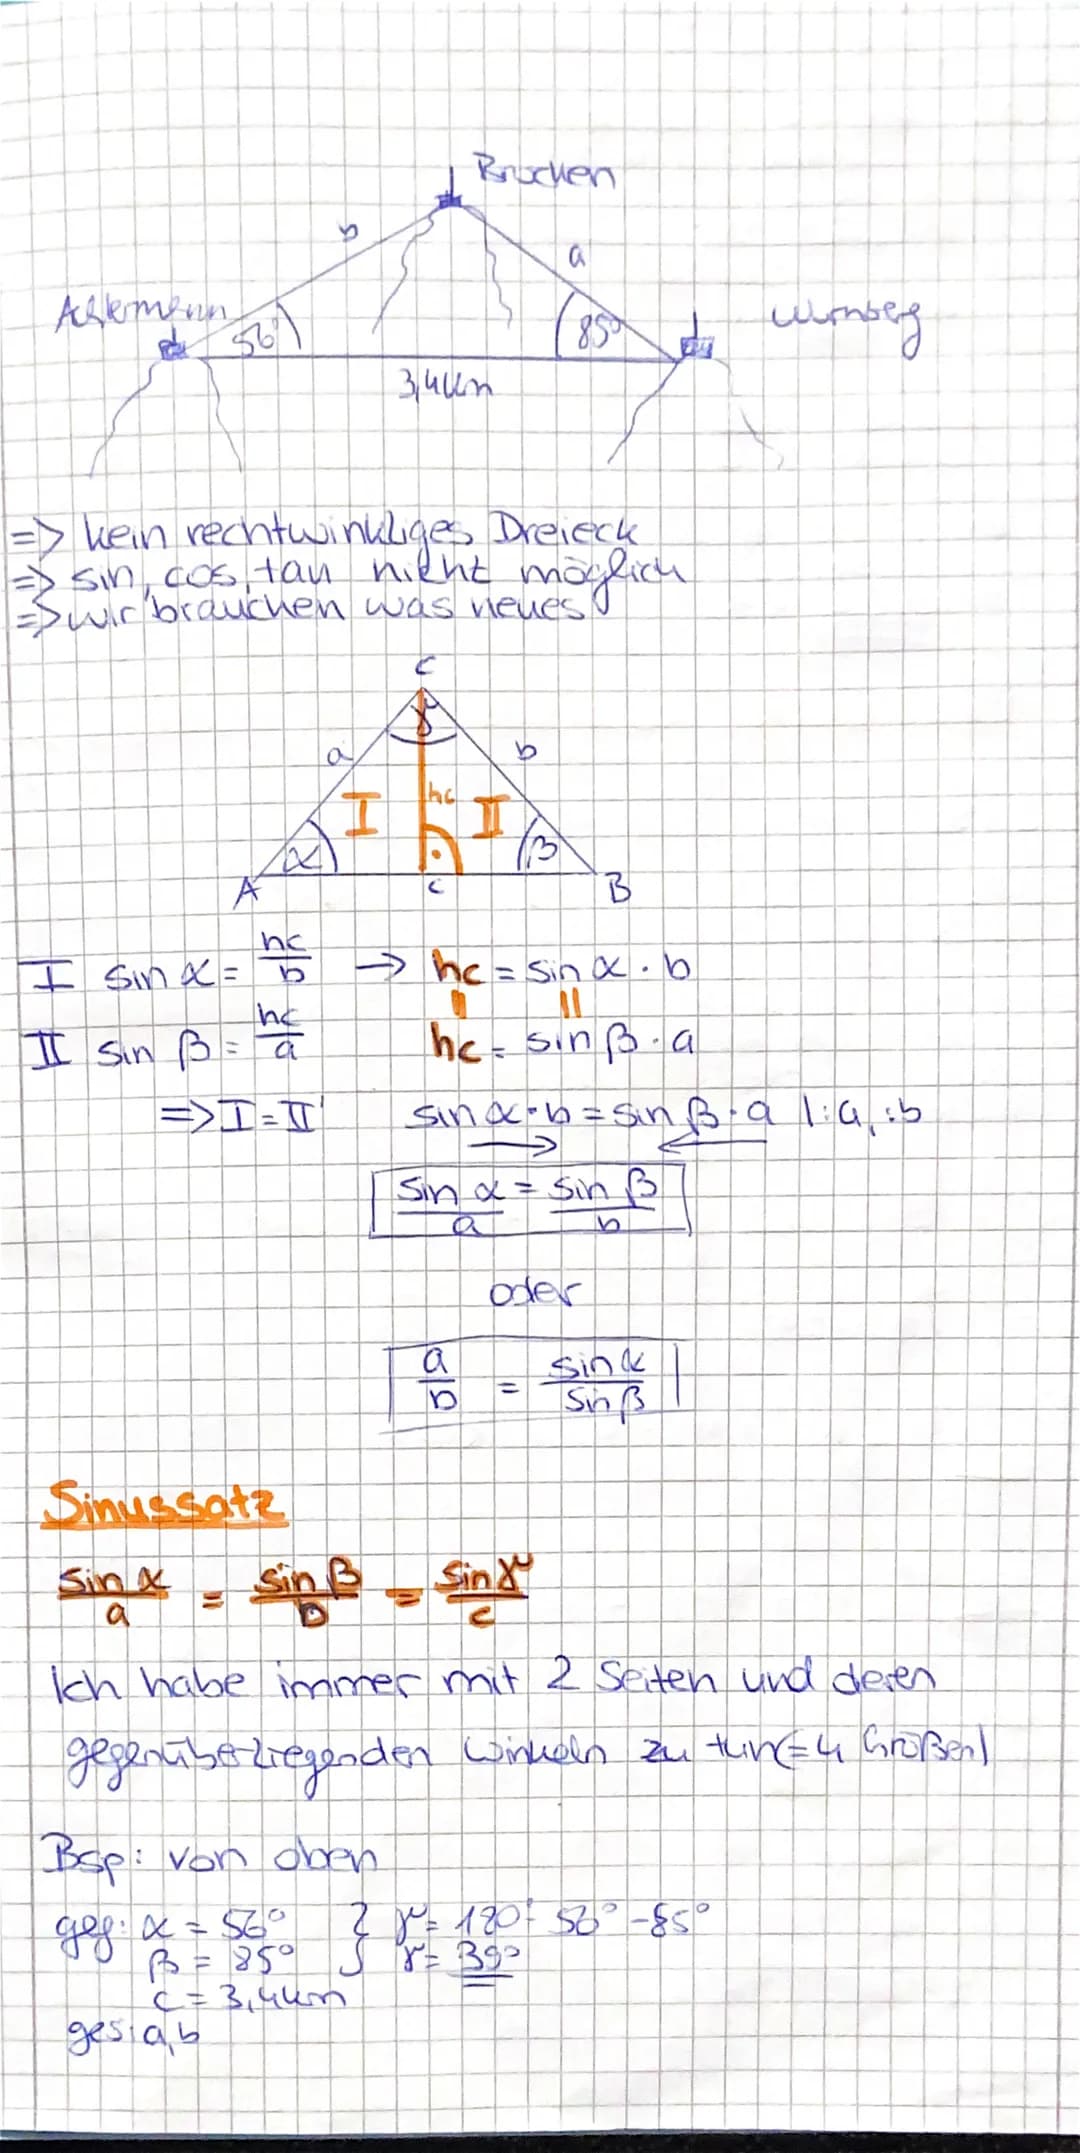 Brocken
b
a
Ackermann
56°
85°
Wurmberg
3,4km
=> kein rechtwinkliges Dreieck
=> sin, cos, tan nicht möglich
=> wir brauchen was neues
C
γ
a
b
I
hc
II
α
β
A
c
B
I sin α = hc/b → hc = sin α · b
II sin β = hc/a hc = sin β · a
=> I = II sin α · b = sin β · a |:a, :b
sin α/a = sin β/b
oder
a/b = sin α/sin β
Sinussatz
sin α/a = sin β/b = sin γ/c
Ich habe immer mit 2 Seiten und deren
gegenüberliegenden Winkeln zu tun (=4 Größen)
Bsp: von oben
geg: α = 56° } γ = 180° - 56° - 85°
β = 85° γ = 39°
c = 3,4km
ges: a, b